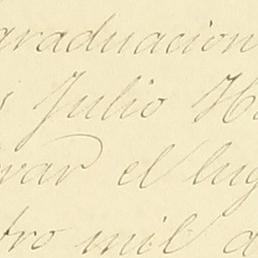 graduacion
Julio
var el lug
tro mil